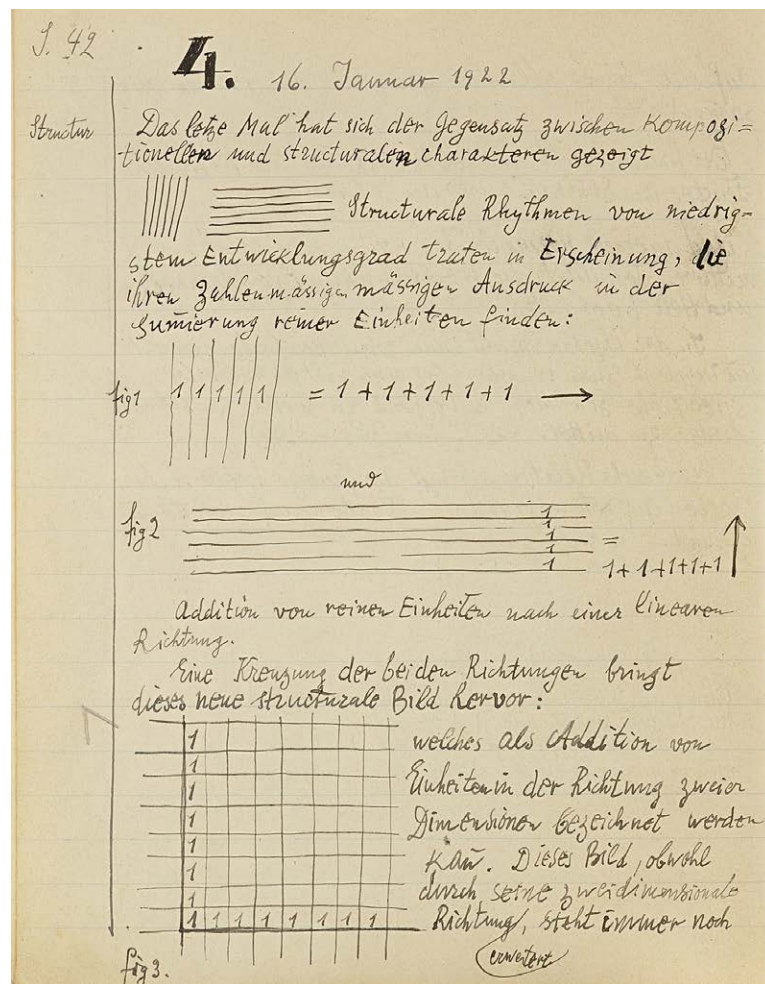 S. 42
4. 16. Januar 1922
Structur
Das letze Mal hat sich der Gegensatz zwischen Komposi=
tionellen und structuralen charakteren gezeigt
Structurale Rhythmen von niedrig-
stem Entwicklungsgrad traten in Erscheinung, die
ihren Zahlenmässigen mässigen Ausdruck in der
Sum̄ierung reiner Einheiten finden:
fig1 1 1 1 1 1 = 1+1+1+1+1 →
und
fig2
1
1
1
1
1
=
1+1+1+1+1 ↑
Addition von reinen Einheiten nach einer linearen
Richtung.
Eine Kreuzung der beiden Richtungen bringt
dieses neue structurale Bild hervor:
1
1
1
1
1
1
1
1 1 1 1 1 1 1 1
fig3.
welches als Addition von
Einheiten in der Richtung zweier
Dimensionen bezeichnet werden
kan̄. Dieses Bild, obwohl
durch seine zweidimensionale
Richtung, steht immer noch
erweitert